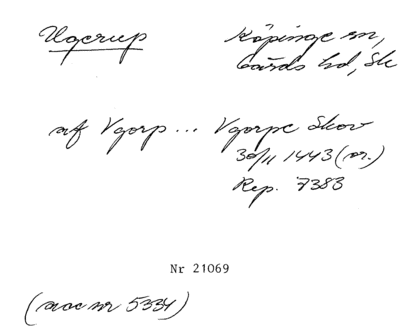 Ugerup Köpinge sn,
Gärds hd, Sk
af Vgorp ... Vgorpe Skov
30/11 1443 (or.)
Rep. 7383
Nr 21069
(acc nr 5334)